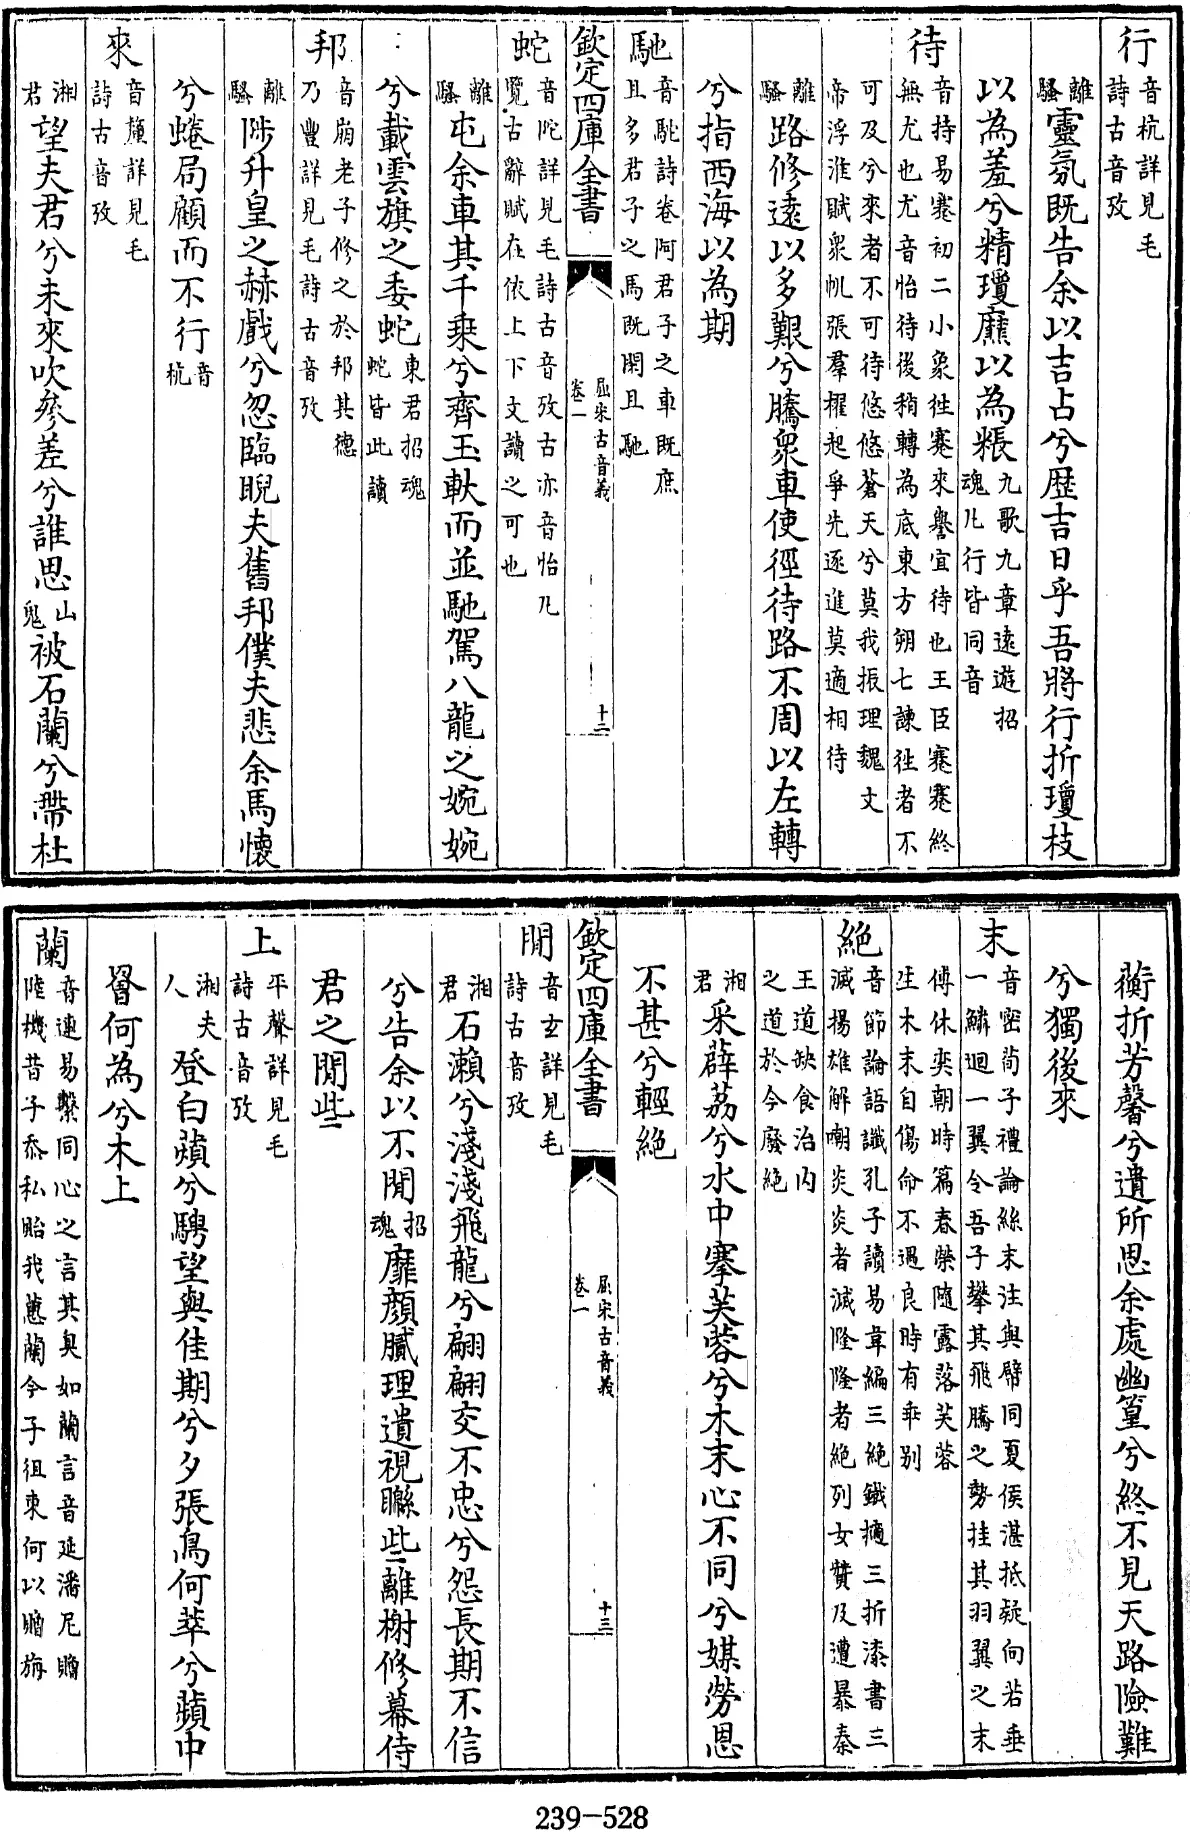 行音杭詳見毛詩古音攷
離騷靈氛既告余以吉占兮歴吉日乎吾將行折瓊枝
以為羞兮精瓊爢以為粻九歌九章逺遊招魂凡行皆同音
待音持易蹇初二小象徃蹇來譽宜待也王臣蹇蹇終無尤也尤音怡待後稍轉為底東方朔七諫徃者不
可及兮來者不可待悠悠蒼天兮莫我振理魏文帝浮淮賦衆帆張羣櫂起爭先逐進莫適相待
離騷路修逺以多艱兮騰衆車使徑待路不周以左轉
兮指西海以為期
馳音駝詩卷阿君子之車既庶且多君子之馬既閑且馳
欽定四庫全書
屈宋古音義
卷二
十二
蛇音陀詳見毛詩古音攷古亦音怡凡覽古辭賦在依上下文讀之可也
離騷屯余車其千乗兮齊玉軑而並馳駕八龍之婉婉
兮載雲旗之委蛇東君招魂蛇皆此讀
邦音崩老子修之於邦其德乃豐詳見毛詩古音攷
離騷陟升皇之赫戲兮忽臨睨夫舊邦僕夫悲余馬懷
兮蜷局顧而不行音杭
來音釐詳見毛詩古音攷
湘君望夫君兮未來吹參差兮誰思山鬼被石蘭兮帶杜
蘅折芳馨兮遺所思余處幽篁兮終不見天路險難
兮獨後來
末音密荀子禮論絲末注與幦同夏侯湛抵疑向若垂一鱗迴一翼令吾子攀其飛騰之勢挂其羽翼之末
傅休奕朝時篇春榮隨露落芙蓉生木末自傷命不遇良時有乖别
絶音節論語讖孔子讀易韋編三絶鐵擿三折漆書三滅揚雄解嘲炎炎者滅隆隆者絶列女贊及遭暴秦
王道缺食治内之道於今廢絶
湘君采薜荔兮水中搴芙蓉兮木末心不同兮媒勞恩
不甚兮輕絶
欽定四庫全書
屈宋古音義
卷一
十三
閒音𤣥詳見毛詩古音攷
湘君石瀨兮淺淺飛龍兮翩翩交不忠兮怨長期不信
兮告余以不閒招魂靡顔膩理遺視矊些離榭修幕侍
君之閒些
上平聲詳見毛詩古音攷
湘夫人登白薠兮騁望與佳期兮夕張鳥何萃兮蘋中
罾何為兮木上
蘭音連易繫同心之言其臭如蘭言音延潘尼贈陸機昔子忝私貽我蕙蘭今子徂東何以贈旃
239-528